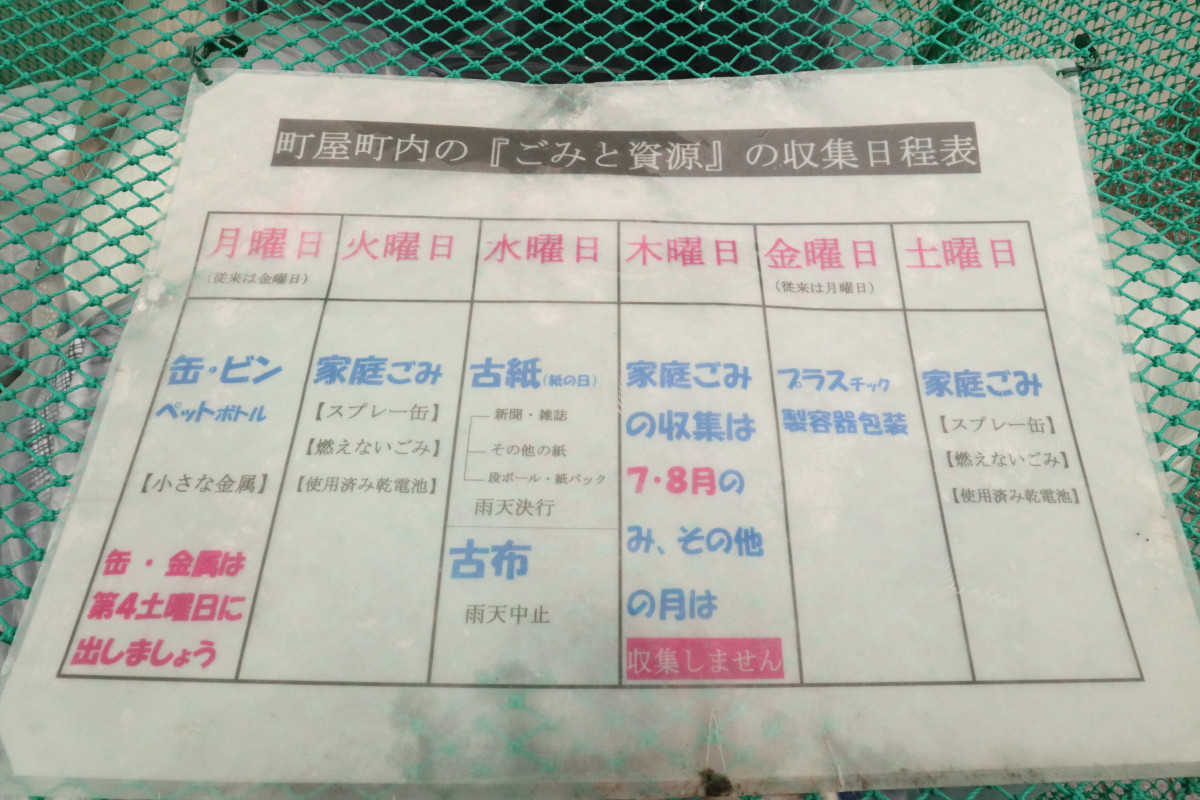 町屋町内の『ごみと資源』の収集日程表
月曜日
(従来は金曜日)
火曜日
水曜日
木曜日
金曜日
(従来は月曜日)
土曜日
缶・ビン
ペットボトル
【小さな金属】
缶・金属は
第4土曜日に
出しましょう
家庭ごみ
【スプレー缶】
【燃えないごみ】
【使用済み乾電池】
古紙(紙の日)
新聞・雑誌
その他の紙
段ボール・紙パック
雨天決行
古布
雨天中止
家庭ごみ
の収集は
7・8月の
み、その他
の月は
収集しません
プラスチック
製容器包装
家庭ごみ
【スプレー缶】
【燃えないごみ】
【使用済み乾電池】